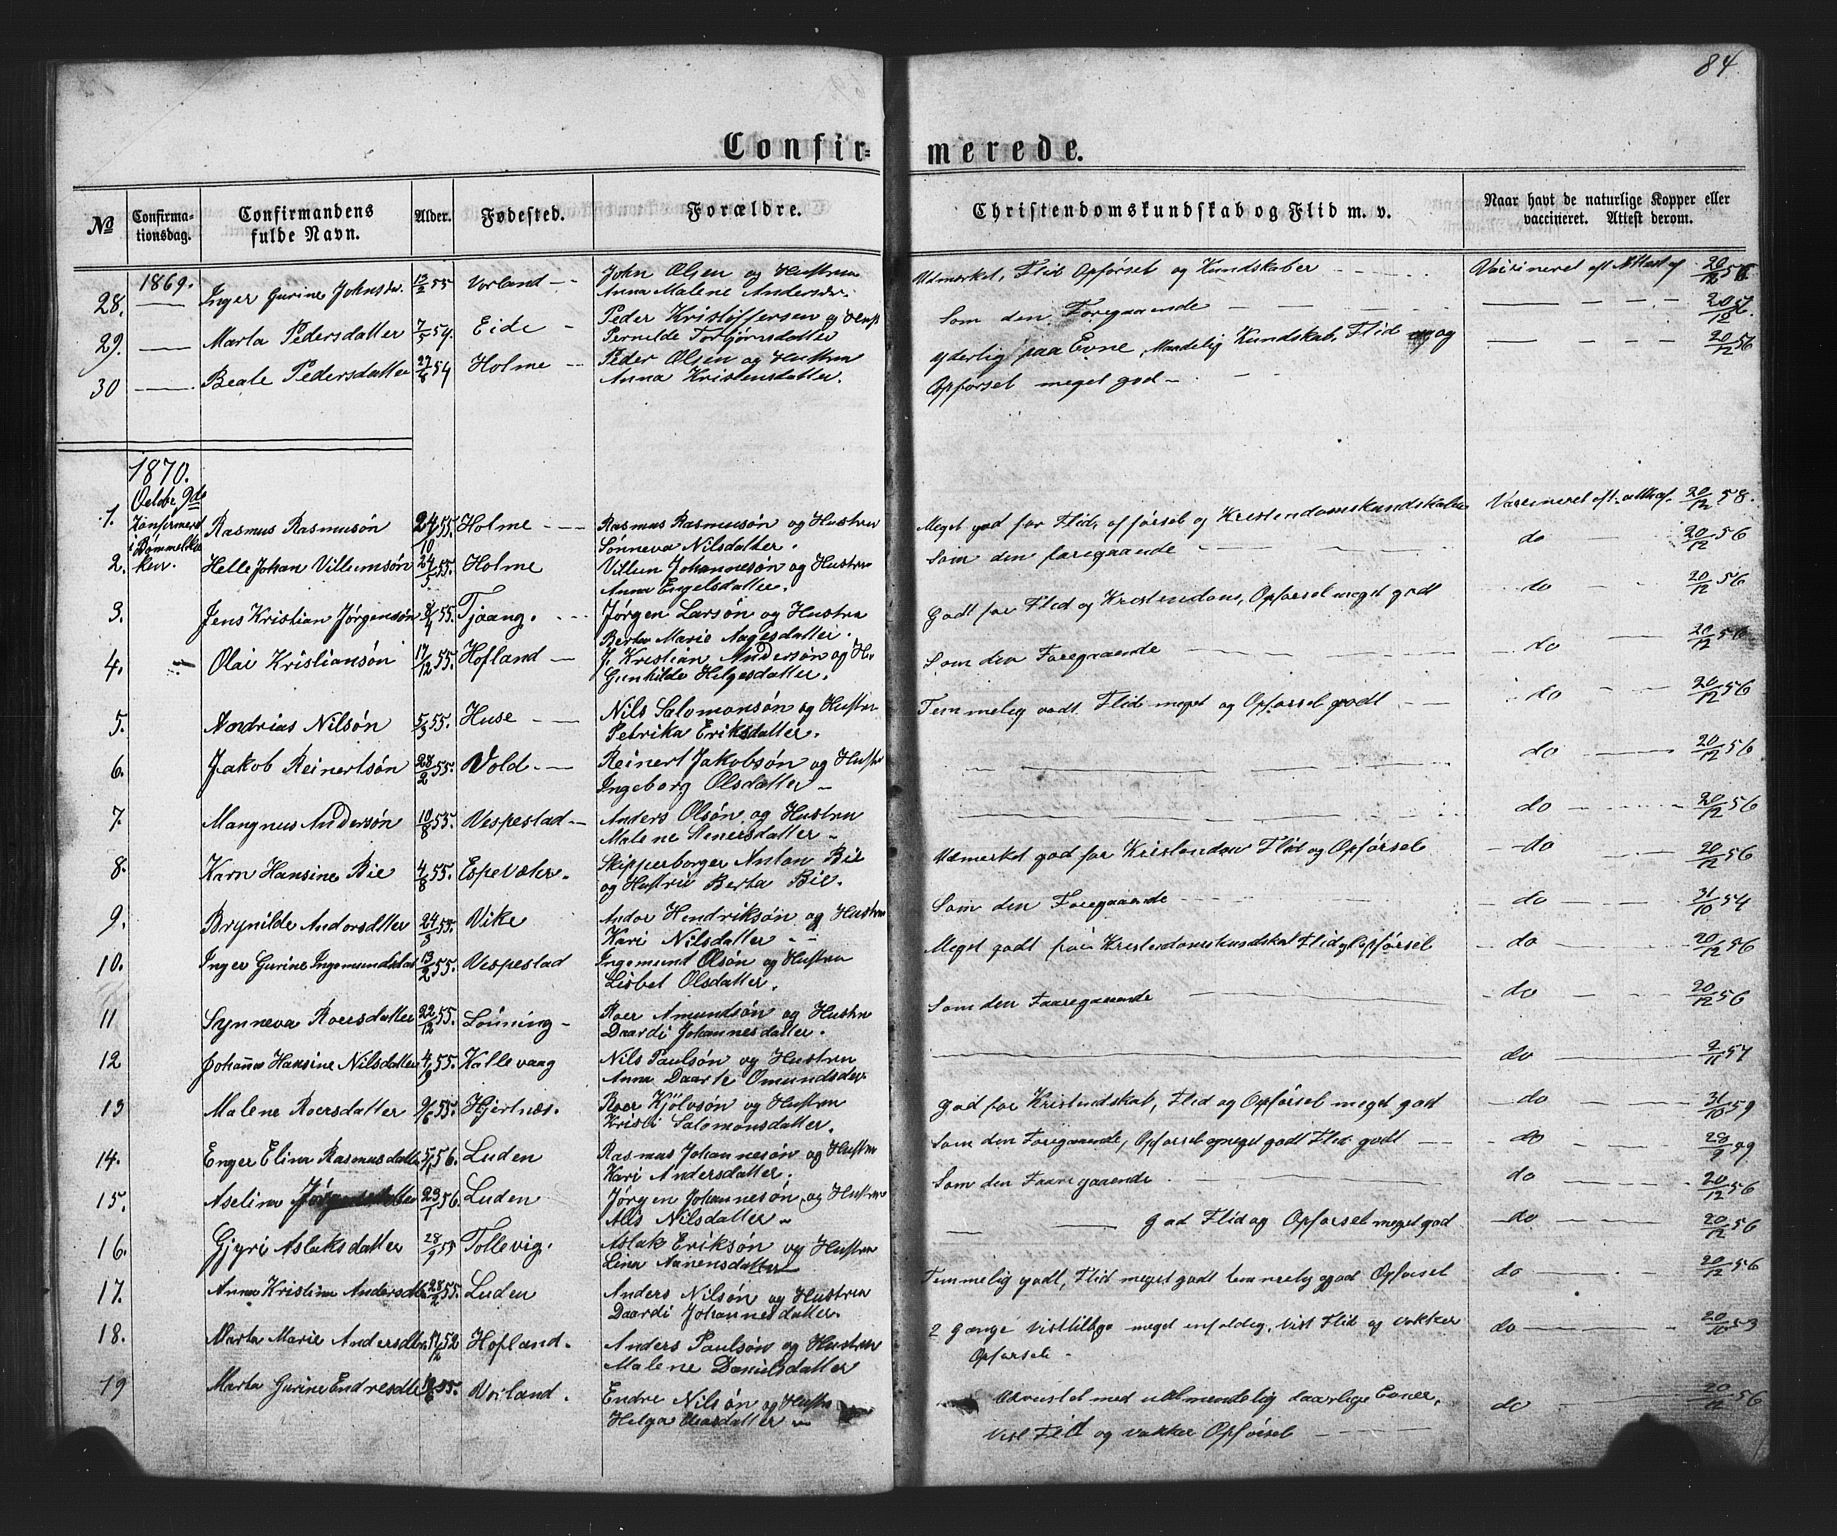 84.
Confir= merede.
№ Confirma-tionsdag. Confirmandens fulde Navn. Alder. Fødested. Forældre. Christendomskundskab og Flid m. v. Naar havt de naturlige Kopper eller vaccineret. Attest derom.
1869.
28. — Inger Gurine Johnsdr. 12/2 55 Vorland — John Olsen og Hustru Udmerket, Flid Opførsel og Kundskaber Vaccineret eft Attest af 20/12 56
Anna Malene Andersdr.
29. — Marta Pedersdatter 7/5 54. Eide — Peder Kristoffersen og Hust Som den Foregaaende 20/10 57.
Pernilde Torbjørnsdatter
30 — Beate Pedersdatter 54 Holme — Peder Olsen og Hustru Yderlig paa Evne, Maadelig Kundskab, Flid og 20/12 56
Anna Kristensdatter. Opførsel meget god —
1870.
Octobr. 9de
1. Konfirmered Rasmus Rasmusøn 24/10 55. Holme — Rasmus Rasmusøn og Hustru Meget god for Flid, opførsel og Kristendomskundskaber Vaccineret eft. att. af. 20/12 58.
i Bømmelkir Sønneva Nilsdatter.
2. ken. Helle Johan Villumsøn 24/5 55. Holme Villum Johannesøn og Hustru Som den foregaaende do 20/12 56
Anna Engelsdatter.
3. Jens Kristian Jørgensøn 55. Tjoang. Jørgen Larsøn og Hustru Godt for Flid og Kristendom, Opførsel meget godt do 20/12 56
Berta Marie Aagesdatter.
4. Olai Kristiansøn 17/12 55. Hofland — J. Kristian Andersøn og H. Som den Foregaaende do 20/12 56
Gunhilde Helgesdatter.
5. Andrias Nilsøn 5/3 55. Huse — Nils Salomonsøn og Hustru Temmelig godt Flid meget og Opførsel godt do 20/12 56
Petrika Eriksdatter.
6. Jakob Reinertsøn 28/2 55. Vold — Reinert Jakobsøn og Hustr — do 20/12 56
Ingeborg Olsdatter —
7. Mangnus Andersøn 10/8 55. Vespestad — Anders Olsøn og Hustru — do 20/12 56
Malene Stenersdatter —
8. Karn Hansine Bie 4/8 55. Espevæher. Skipperborger Anton Bie Udmerket god for Kristendom Flid og Opførsel do 20/12 56
og Hustru Berta Bie.
9. Brynilde Andorsdatter 24/3 55. Vike Andor Hendriksøn og Hustru Som den Foregaaende do 31/10 54
Kari Nilsdatter
10. Inger Gurine Ingemundsdat 13/2 55. Vespestad Ingemund Olsøn og Hustru Meget godt for Kristendomskundskab Flid og Opførsel do 20/12 56
Lisbet Olsdatter.
11 Synneva Roersdatter 22/12 55. Lønning — Roer Amundsøn og Hustru Som den Foregaaende do 20/12 56
Daardi Johannesdatter.
12 Johanna Hansine Nilsdatter 4/9 55. Kallevaag Nils Paulsøn og Hustru — do 2/11 57
Anna Daarte Omundsdtr
13 Malene Roersdatter 9/6 55. Hjertnæs. Roer Kjølvsøn og Hustru God for Kristendskab, Flid og Opførsel meget godt do 31/10 59
Kristi Salomonsdatter.
14. Enger Elina Rasmusdatter 5/1 56. Luden Rasmus Johannesøn og Hustru Som den Foregaaende, Opførsel meget godt Flid godt do 29/9
Kari Andersdatter.
15. Aselina Jørgensdatter 23/1 56 Luden Jørgen Johannesøn og Hustru Som den Foregaaende. do 20/12 56
Alis Nilsdatter —
16. Gjyri Aslaksdatter 28/9 55 Tollevig. Aslak Eriksøn og Hustru — God Flid og Opførsel meget god do 20/12 56
Lina Aanensdatter
17. Anna Kristina Andersdtr 28/2 55. Luden Anders Nilsøn og Hustru Temmelig godt, Flid meget godt temmelig god Opførsel do 20/12 56
Daardi Johannesdatter.
18. Marta Marie Andersdtr 52 Hofland. Anders Paulsøn og Hustru 2 Gange meget enfoldig, Vist Flid og vakker do 20/10 53
Malene Danielsdatter Opførsel.
19 Marta Gurine Endresdtr 55. Vorland. Endre Nilsøn og Hustru Udrustet med udlmendelig daarlige Evner, do 20/12 56
Helga — Vist Flid og vakker Opførsel